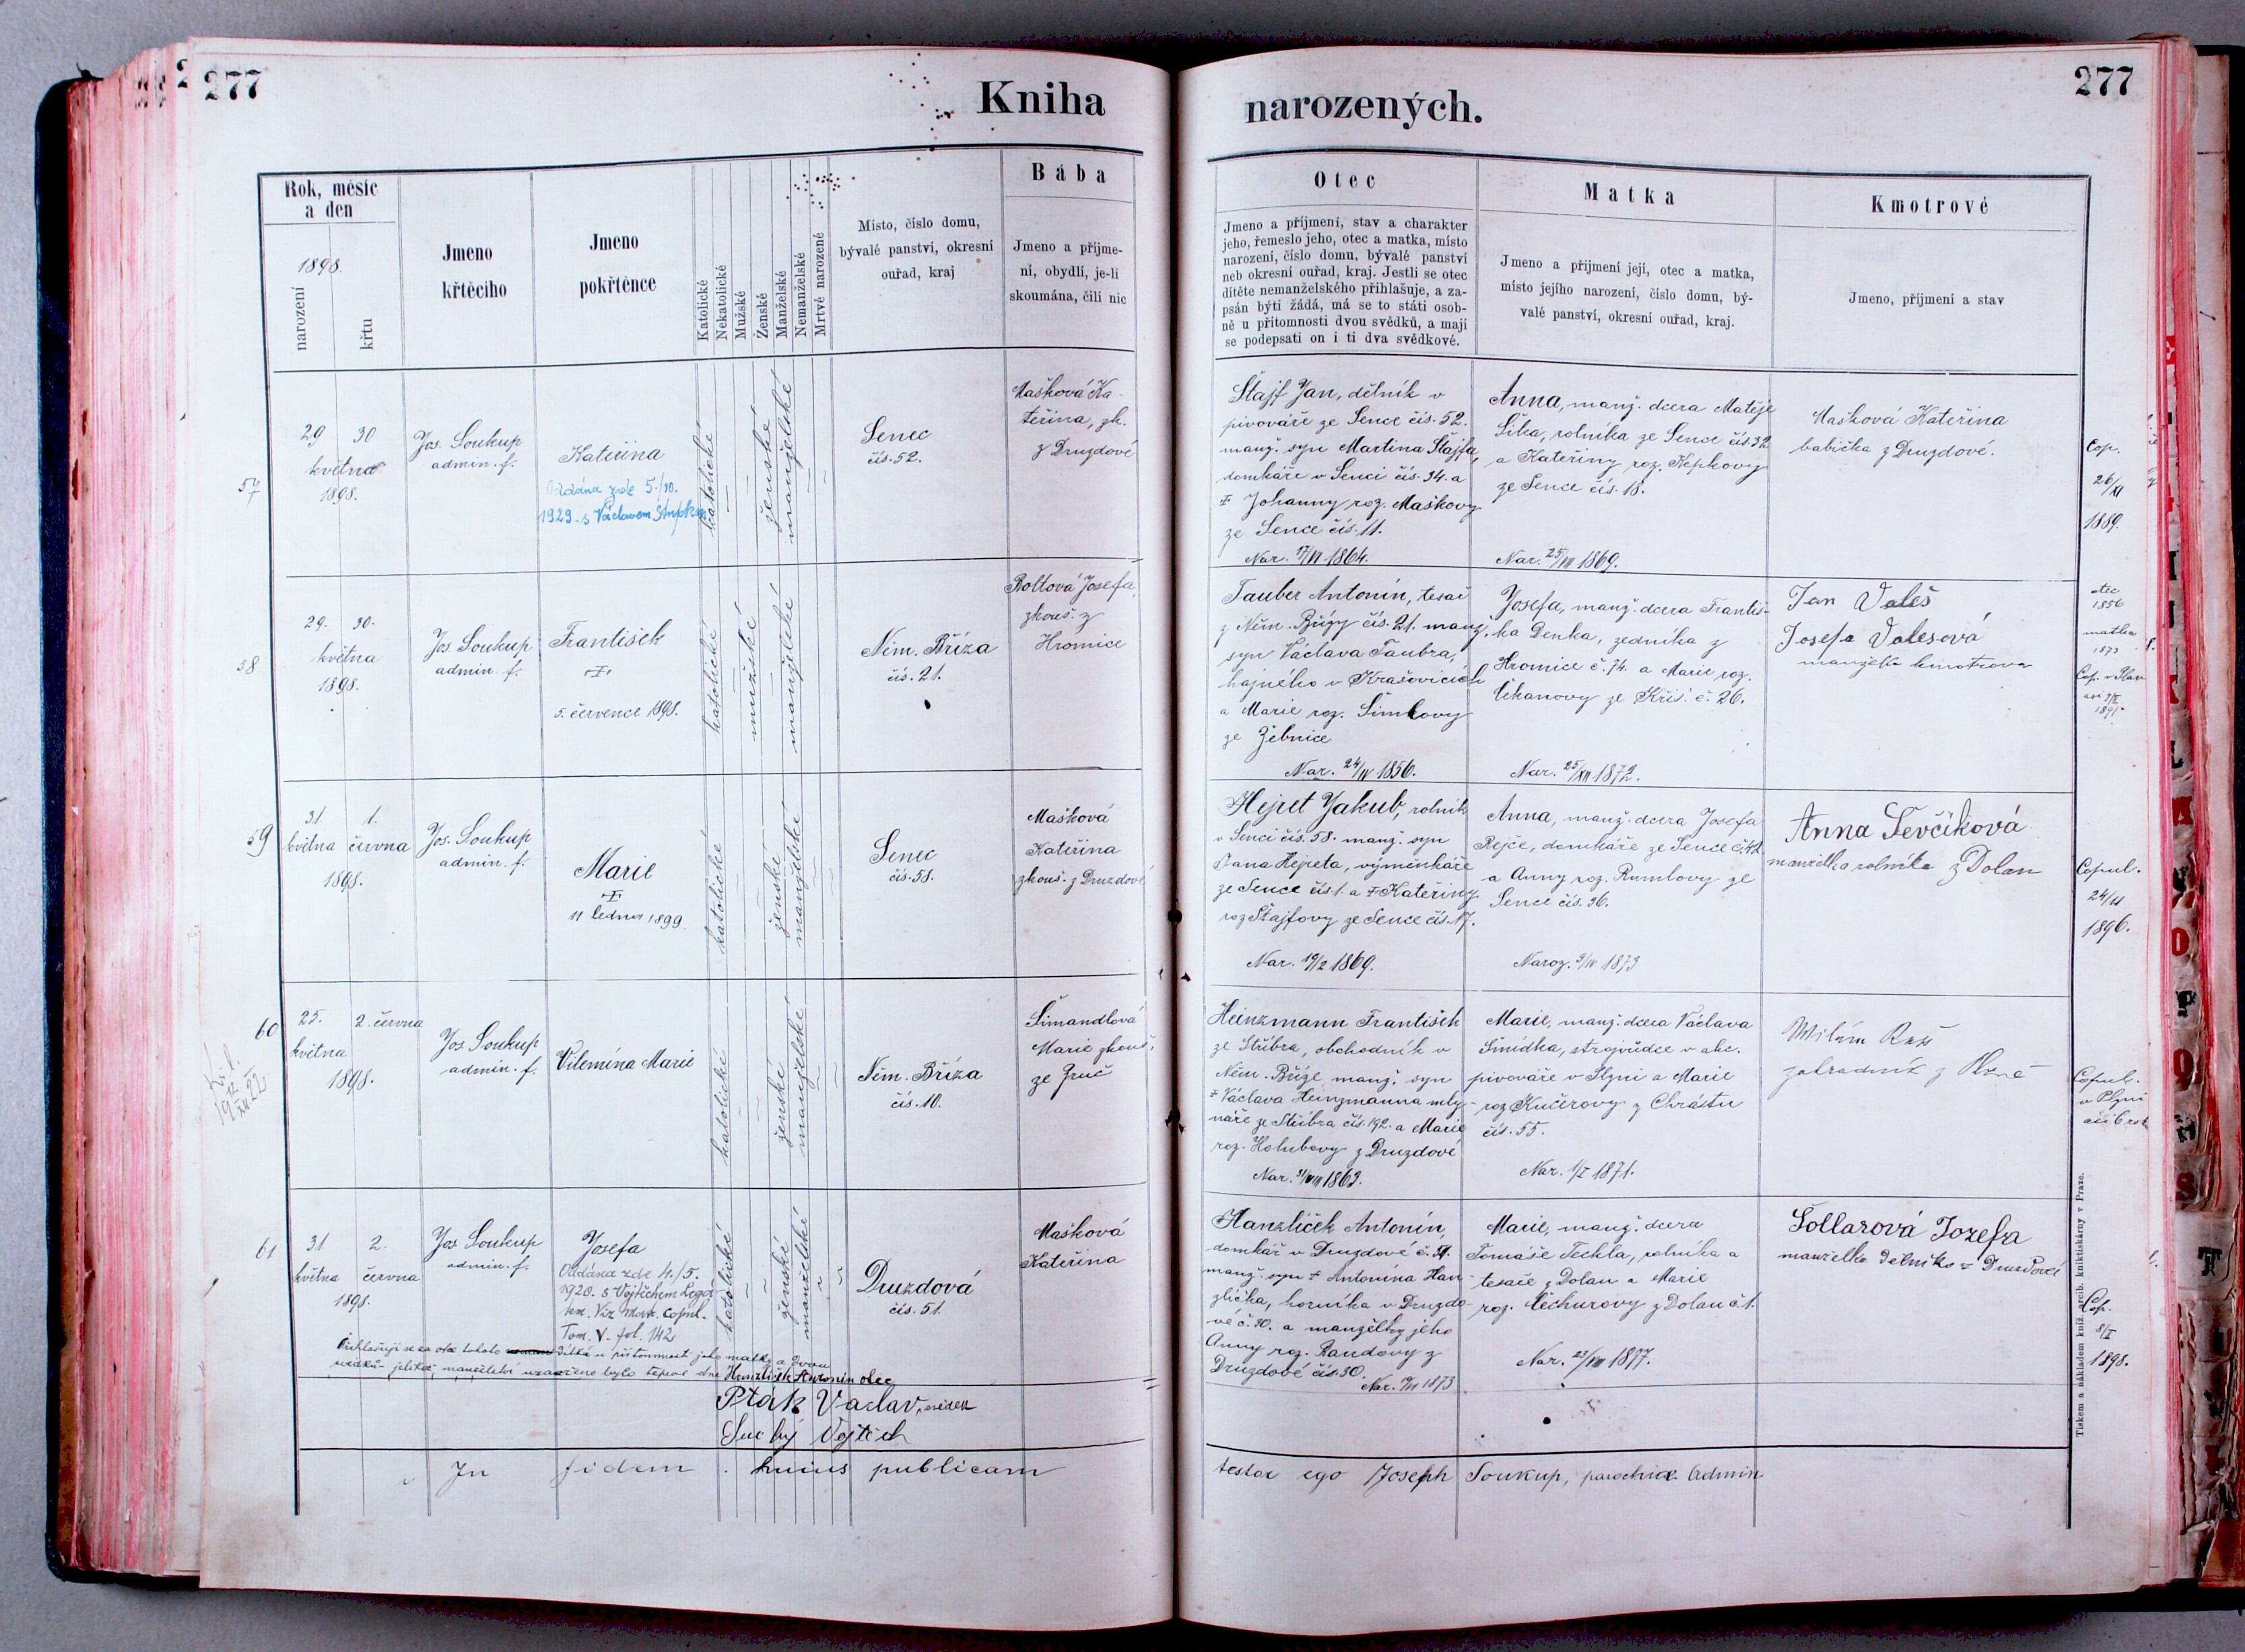 277
Kniha
narozených.
277
Rok, měsíc
a den
1898.
narození
křtu
Jmeno
křtěcího
Jmeno
pokřtěnce
Katolické
Nekatolické
Mužské
Ženské
Manželské
Nemanželské
Mrtvé narozené
Místo, číslo domu,
bývalé panství, okresní
ouřad, kraj
Bába
Jmeno a příjme-
ní, obydlí, je-li
skoumána, čili nic
Otec
Jmeno a příjmení, stav a charakter
jeho, řemeslo jeho, otec a matka, místo
narození, číslo domu, bývalé panství
neb okresní ouřad, kraj. Jestli se otec
dítěte nemanželského přihlašuje, a za-
psán býti žádá, má se to státi osob-
ně u přítomnosti dvou svědků, a mají
se podepsati on i ti dva svědkové.
Matka
Jmeno a příjmení její, otec a matka,
místo jejího narození, číslo domu, bý-
valé panství, okresní ouřad, kraj.
Kmotrové
Jmeno, příjmení a stav
57
29 30
května
1898.
Jos. Soukup
admin. f.
Kateřina
Oddána zde 5./10.
1929 s Václavem
katolické
ženské
manželské
Senec
čís. 52.
Mašková Ka-
teřina, zk.
z Druzdové
Štajf Jan, dělník v
pivováře ze Sence čís. 52.
manž. syn Martina Štajfa,
domkáře v Senci čís. 34. a
Johanny roz. Maškovy
ze Sence čís. 11.
Nar. 1864.
Anna, manž. dcera Matěje
Šika, rolníka ze Sence čís. 32
a Kateřiny roz. Kepkovy
ze Sence čís. 18.
Nar. 25/VII 1869.
Mašková Kateřina
babička z Druzdové.
Cop.
26/XI
1889.
58
29. 30.
května
1898.
Jos. Soukup
admin. f.
František
5. července 1898.
katolické
mužské
manželské
Něm. Bříza
čís. 21.
Boltová Josefa,
zkouš. z
Hromice
Tauber Antonín, tesař
z Něm. Břízy čís. 21. manž.
syn Václava Taubra,
hajného v Krašovicích
a Marie roz. Šimkovy
ze Žebnice
Nar. 24/IV 1856.
Josefa, manž. dcera Františ-
ka Denka, zedníka z
Hromice č. 74. a Marie roz.
Cikanovy ze Kříš. č. 26.
Nar. 25/XII 1872.
Jan Valeš
Josefa Valesová
manželka kmotrova
otec
1856
matka
1873
1891.
59
31 1.
května června
1898.
Jos. Soukup
admin. f.
Marie
11 ledna 1899
katolické
ženské
manželské
Senec
čís. 58.
Mašková
Kateřina
zkouš. z Druzdové
Hejret Jakub, rolník
v Senci čís. 58. manž. syn
Jana Hejreta, výminkáře
ze Sence čís. 1. a Kateřiny
roz Štajfovy ze Sence čís. 17.
Nar. 19/2 1869.
Anna, manž. dcera Josefa
Rejče, domkáře ze Sence č. 42
a Anny roz. Rumlovy ze
Sence čís. 36.
Naroz. 9/IV 1873
Anna Ševčíková
manželka rolníka z Dolan
Copul.
24/XI
1896.
60
25. 2. června
května
1898.
Jos. Soukup
admin. f.
Vilemína Marie
katolické
ženské
manželské
Něm. Bříza
čís. 10.
Šimandlová
Marie zkouš.
ze Zruč
Heinzmann František
ze Stříbra, obchodník v
Něm. Bříze, manž. syn
Václava Heinzmanna mly-
náře ze Stříbra čís. 192. a Marie
roz. Holubovy z Druzdové
Nar. 1863.
Marie, manž. dcera Václava
Šmídka, strojvůdce v akc.
pivováře v Plzni a Marie
roz Kučerovy z Chrástu
čís. 55.
Nar. 1/I 1871.
zahradník z Plzně
Copul.
v Plzni
61
31 2.
května června
1898.
Jos. Soukup
admin. f.
Josefa
Oddána zde 4./5.
1920. s Vojtěchem
Viz matr. Copul.
Tom. V. fol. 142
katolické
ženské
manželské
Druzdová
čís. 51.
Mašková
Kateřina
Přihlašuji se za otce tohoto dítka u přítomnosti jeho matky a dvou
svědků manželství uzavřeno bylo teprve dne
Hanzlíček Antonín otec
Pták Vaclav, svědek
Suchý Vojtěch
Hanzlíček Antonín,
domkář v Druzdové č. 51.
manž. syn Antonína Han-
zlíčka, horníka v Druzdo-
vé č. 30. a manželky jeho
Anny roz. Randovy z
Druzdové čís. 30.
1873
Marie, manž. dcera
Tomáše Techla, rolníka a
tesaře z Dolan a Marie
roz. Čechurovy z Dolan č. 1.
Nar. 23/VIII 1877.
Sollarová Jozefa
manželka dělníka z Druzdové
Cop.
8/I
1898.
In fidem huius publicam
testor ego Joseph Soukup, parochiae Admin
Tiskem a nákladem kníž. arcib. knihtiskárny v Praze.